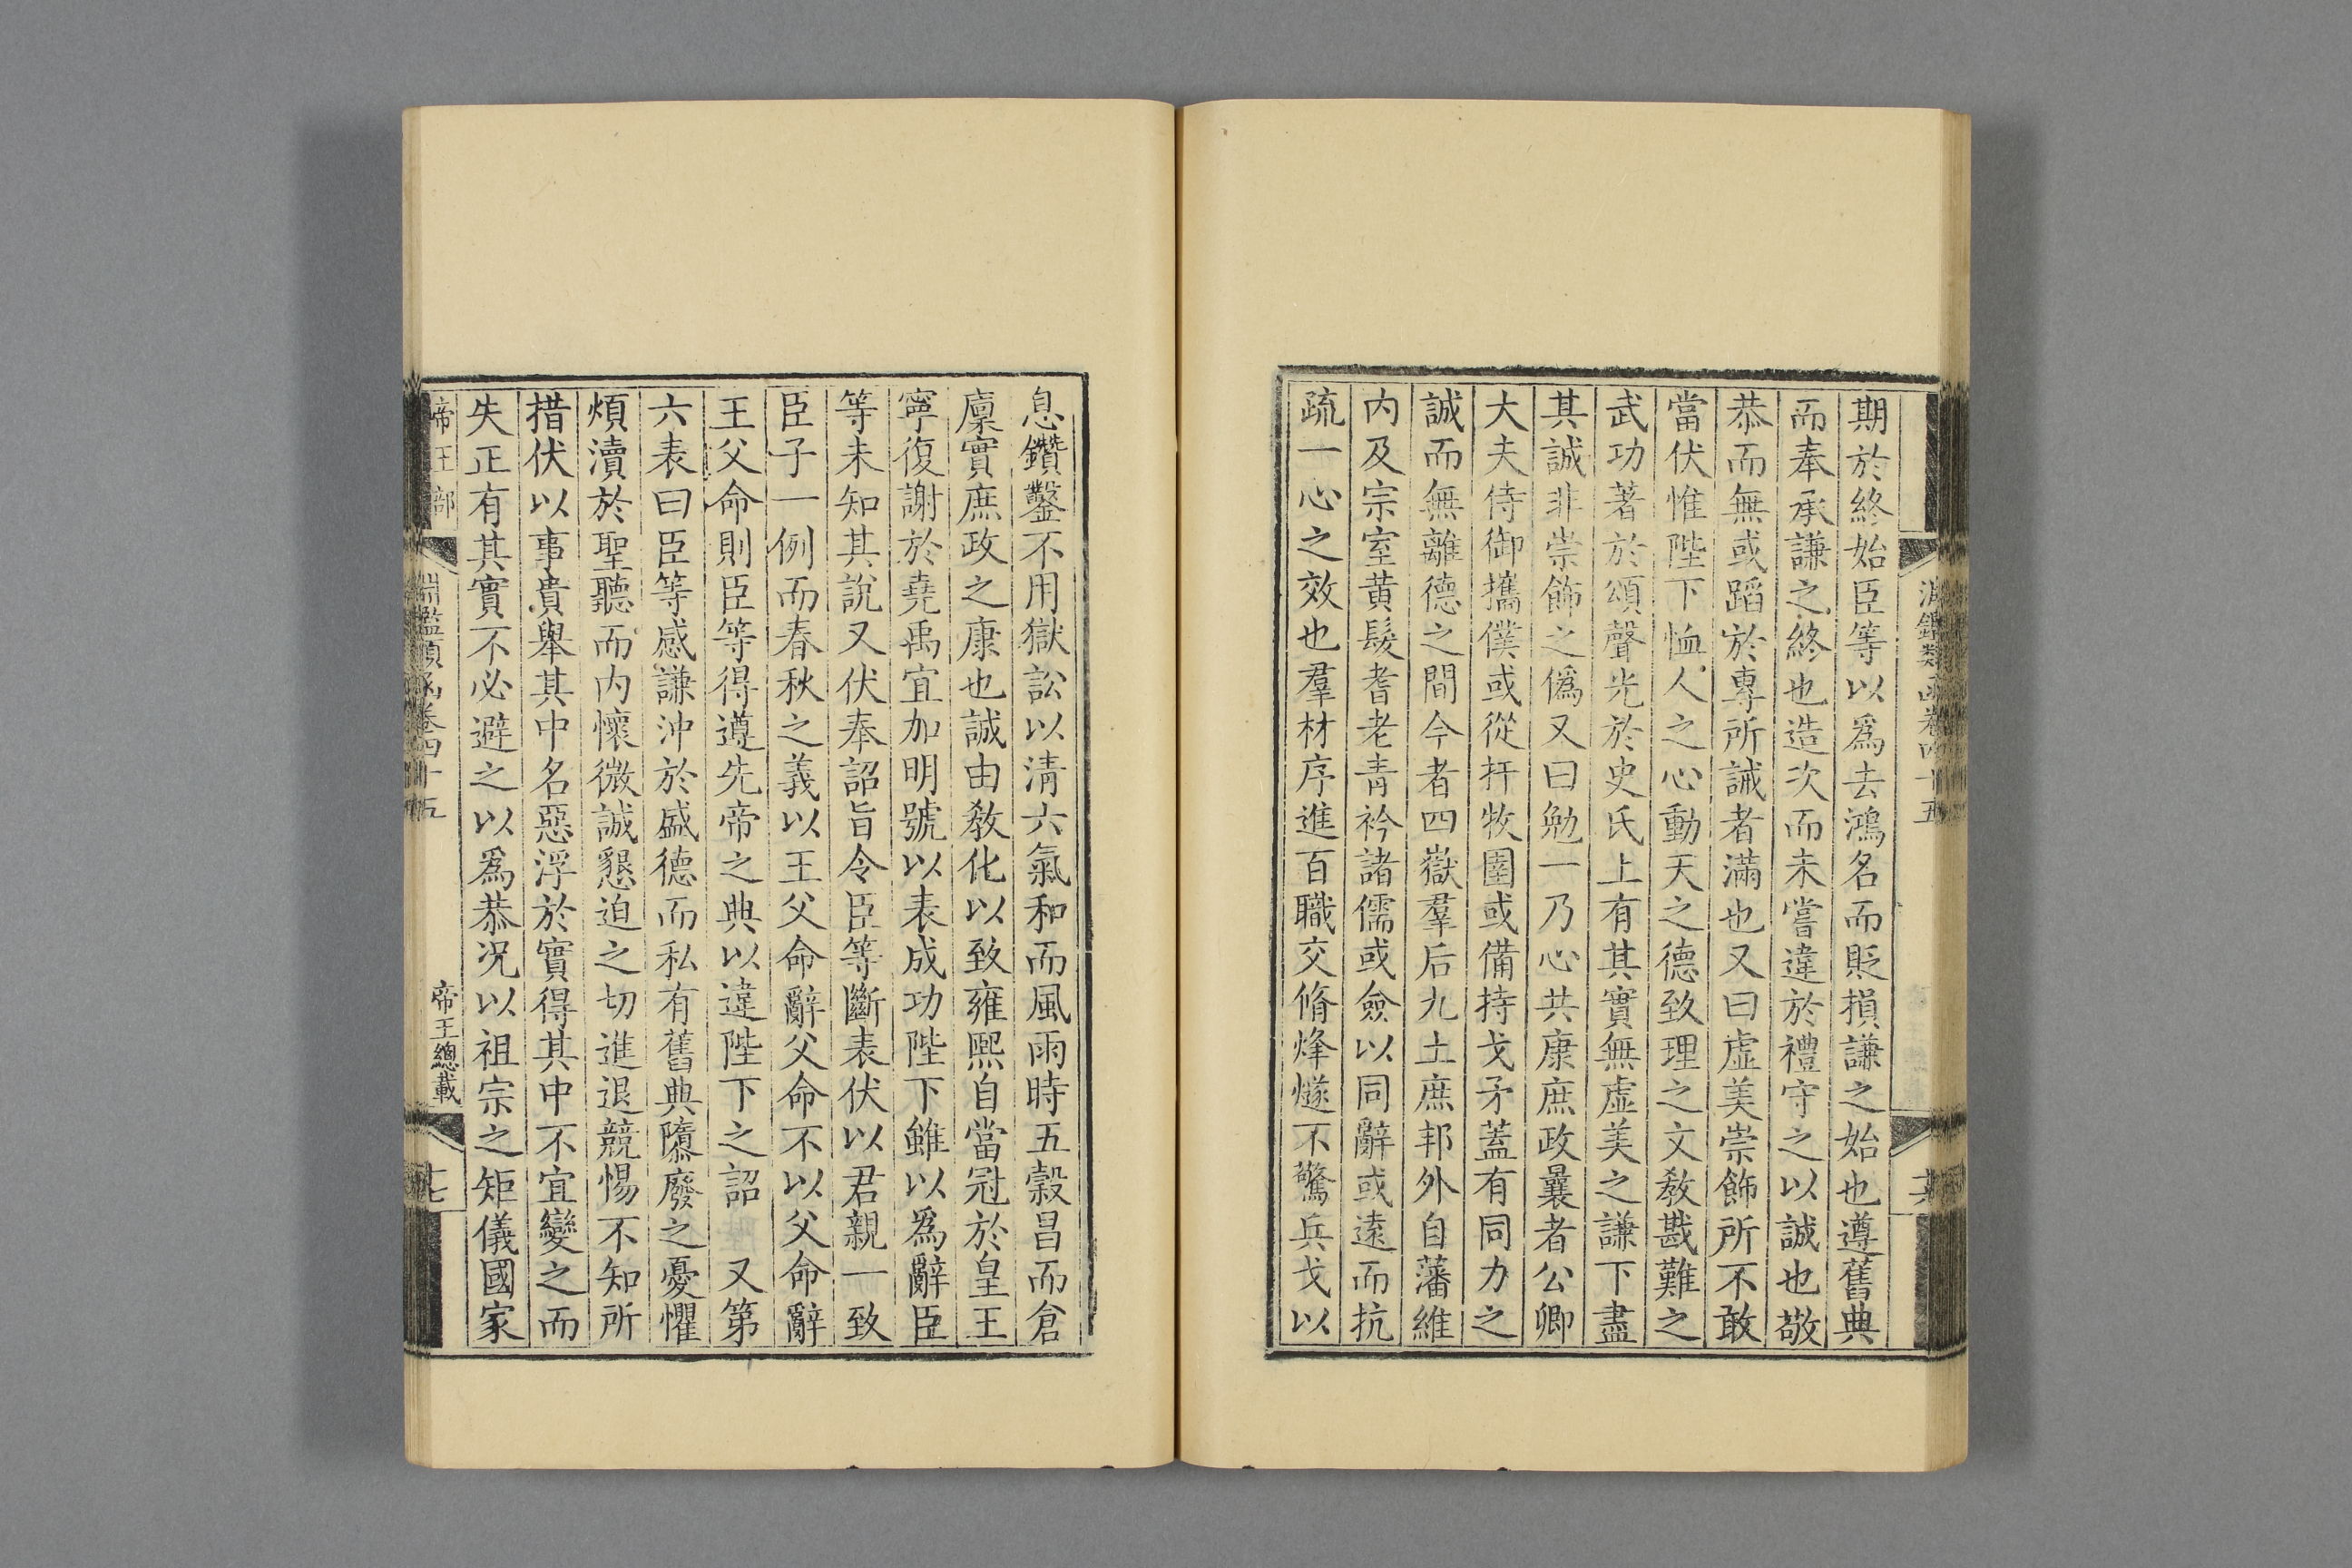 淵鑑類函卷四十五
期於終始臣等以爲去鴻名而貶損謙之始也遵舊典
而奉承謙之終也造次而未嘗違於禮守之以誠也敬
恭而無或蹈於專所誡者滿也又曰虛美崇飾所不敢
當伏惟陛下恤人之心動天之德致理之文敎戡難之
武功著於頌聲光於史氏上有其實無虛美之謙下盡
其誠非崇飾之僞又曰勉一乃心共康庶政曩者公卿
大夫侍御攜僕或從扞牧圉或備持戈矛蓋有同力之
誠而無離德之間今者四嶽羣后九土庶邦外自藩維
内及宗室黄髮耆老青衿諸儒或僉以同辭或遠而抗
疏一心之效也羣材序進百職交脩烽燧不驚兵戈以
息鑽鑿不用獄訟以淸六氣和而風雨時五穀昌而倉
廩實庶政之康也誠由敎化以致雍熙自當冠於皇王
寧復謝於堯禹宜加明號以表成功陛下雖以爲辭臣
等未知其說又伏奉詔旨令臣等斷表伏以君親一致
臣子一例而春秋之義以王父命辭父命不以父命辭
王父命則臣等得遵先帝之典以違陛下之詔 又第
六表曰臣等感謙沖於盛德而私有舊典隳廢之憂懼
煩瀆於聖聽而内懷微誠懇迫之切進退競惕不知所
措伏以事貴舉其中名惡浮於實得其中不宜變之而
失正有其實不必避之以爲恭况以祖宗之矩儀國家
帝王部 淵鑑類函卷四十五 帝王總載 七